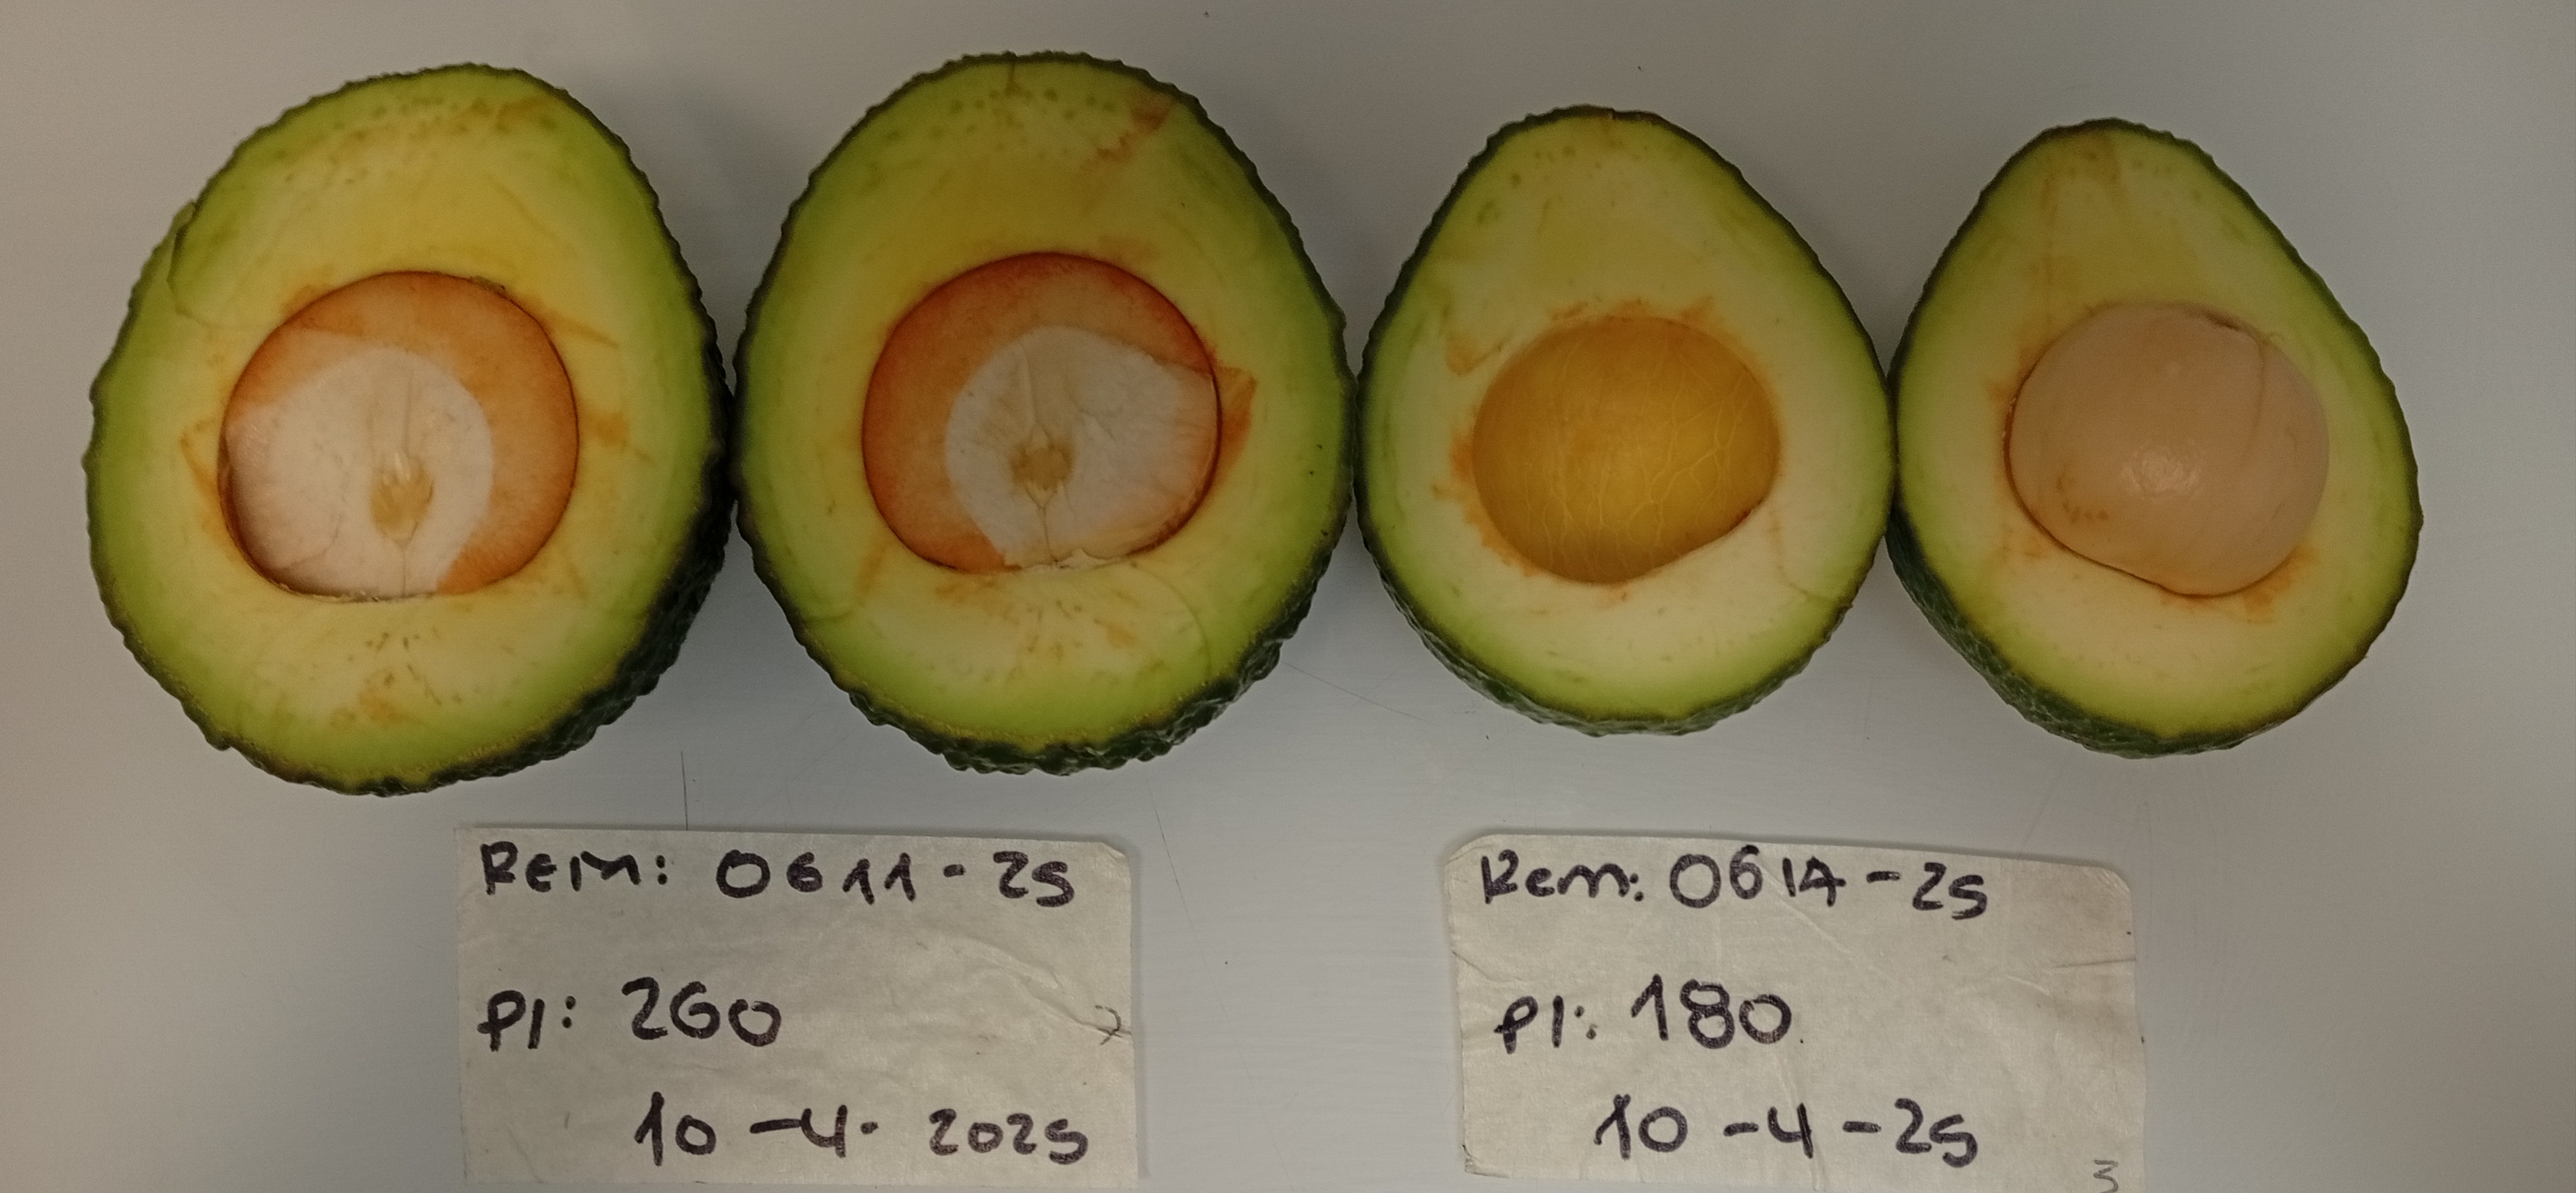 Rem: 0611-25
PI: 260
10-4-2025
Rem: 0614-25
PI: 180
10-4-25
3